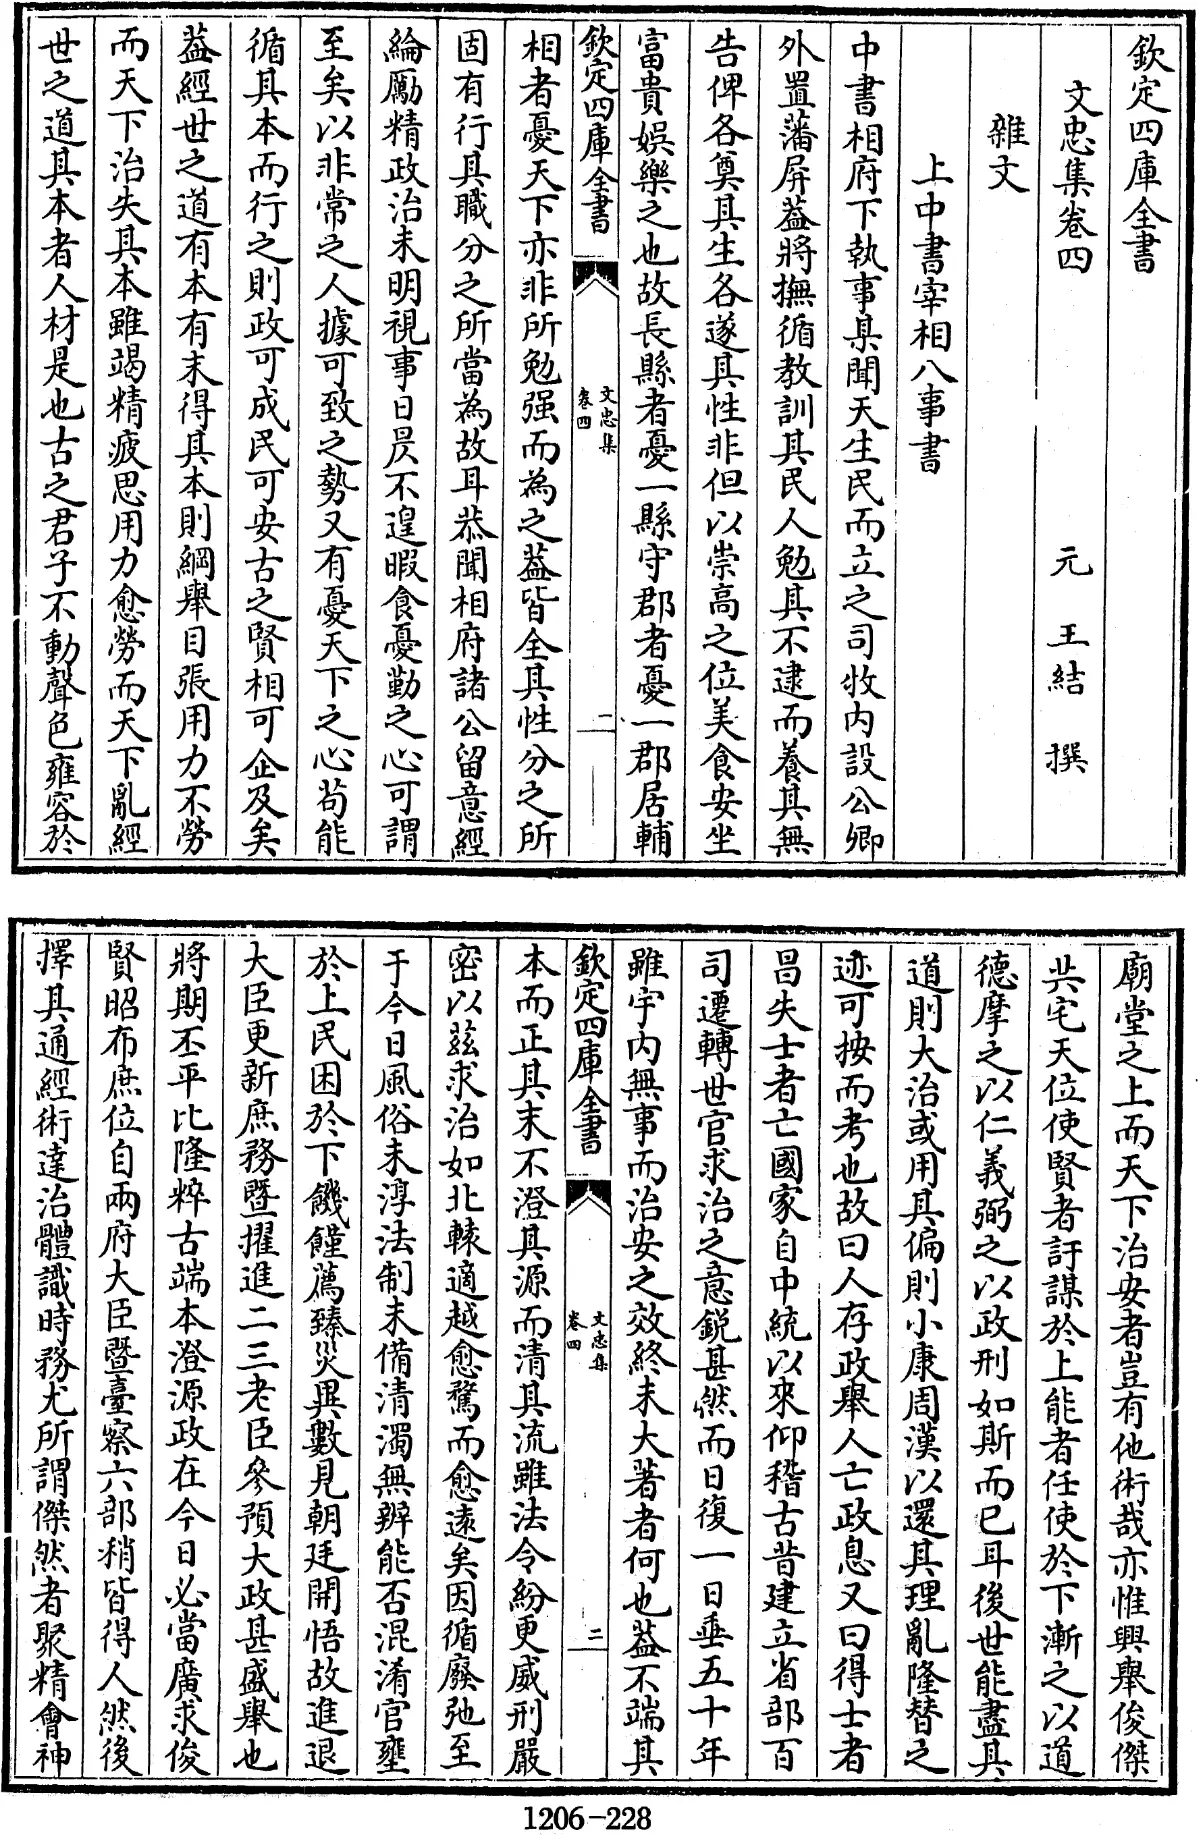 欽定四庫全書
文忠集卷四
元 王結 撰
雜文
上中書宰相八事書
中書相府下執事某聞天生民而立之司牧内設公卿
外置藩屏葢將撫循教訓其民人勉其不逮而養其無
告俾各奠其生各遂其性非但以崇高之位美食安坐
富貴娛樂之也故長縣者憂一縣守郡者憂一郡居輔
欽定四庫全書
文忠集
卷四
一
相者憂天下亦非所勉强而為之葢皆全其性分之所
固有行其職分之所當為故耳恭聞相府諸公留意經
綸勵精政治未明視事日昃不遑暇食憂勤之心可謂
至矣以非常之人據可致之勢又有憂天下之心茍能
循其本而行之則政可成民可安古之賢相可企及矣
葢經世之道有本有末得其本則綱舉目張用力不勞
而天下治失其本雖竭精疲思用力愈勞而天下亂經
世之道其本者人材是也古之君子不動聲色雍容於
廟堂之上而天下治安者豈有他術哉亦惟興舉俊傑
共宅天位使賢者訏謀於上能者任使於下漸之以道
德摩之以仁義弼之以政刑如斯而已耳後世能盡其
道則大治或用其偏則小康周漢以還其理亂隆替之
迹可按而考也故曰人存政舉人亡政息又曰得士者
昌失士者亡國家自中統以來仰稽古昔建立省部百
司遷轉世官求治之意鋭甚然而日復一日垂五十年
雖宇内無事而治安之效終未大著者何也葢不端其
欽定四庫全書
文忠集
卷四
二
本而正其末不澄其源而清其流雖法令紛更威刑嚴
密以兹求治如北轅適越愈騖而愈逺矣因循廢弛至
于今日風俗未淳法制未備清濁無辨能否混淆官壅
於上民困於下饑饉薦臻災異數見朝廷開悟故進退
大臣更新庶務暨擢進二三老臣參預大政甚盛舉也
將期丕平比隆粹古端本澄源政在今日必當廣求俊
賢昭布庶位自兩府大臣暨臺察六部稍皆得人然後
擇其通經術達治體識時務尤所謂傑然者聚精會神
1206-228